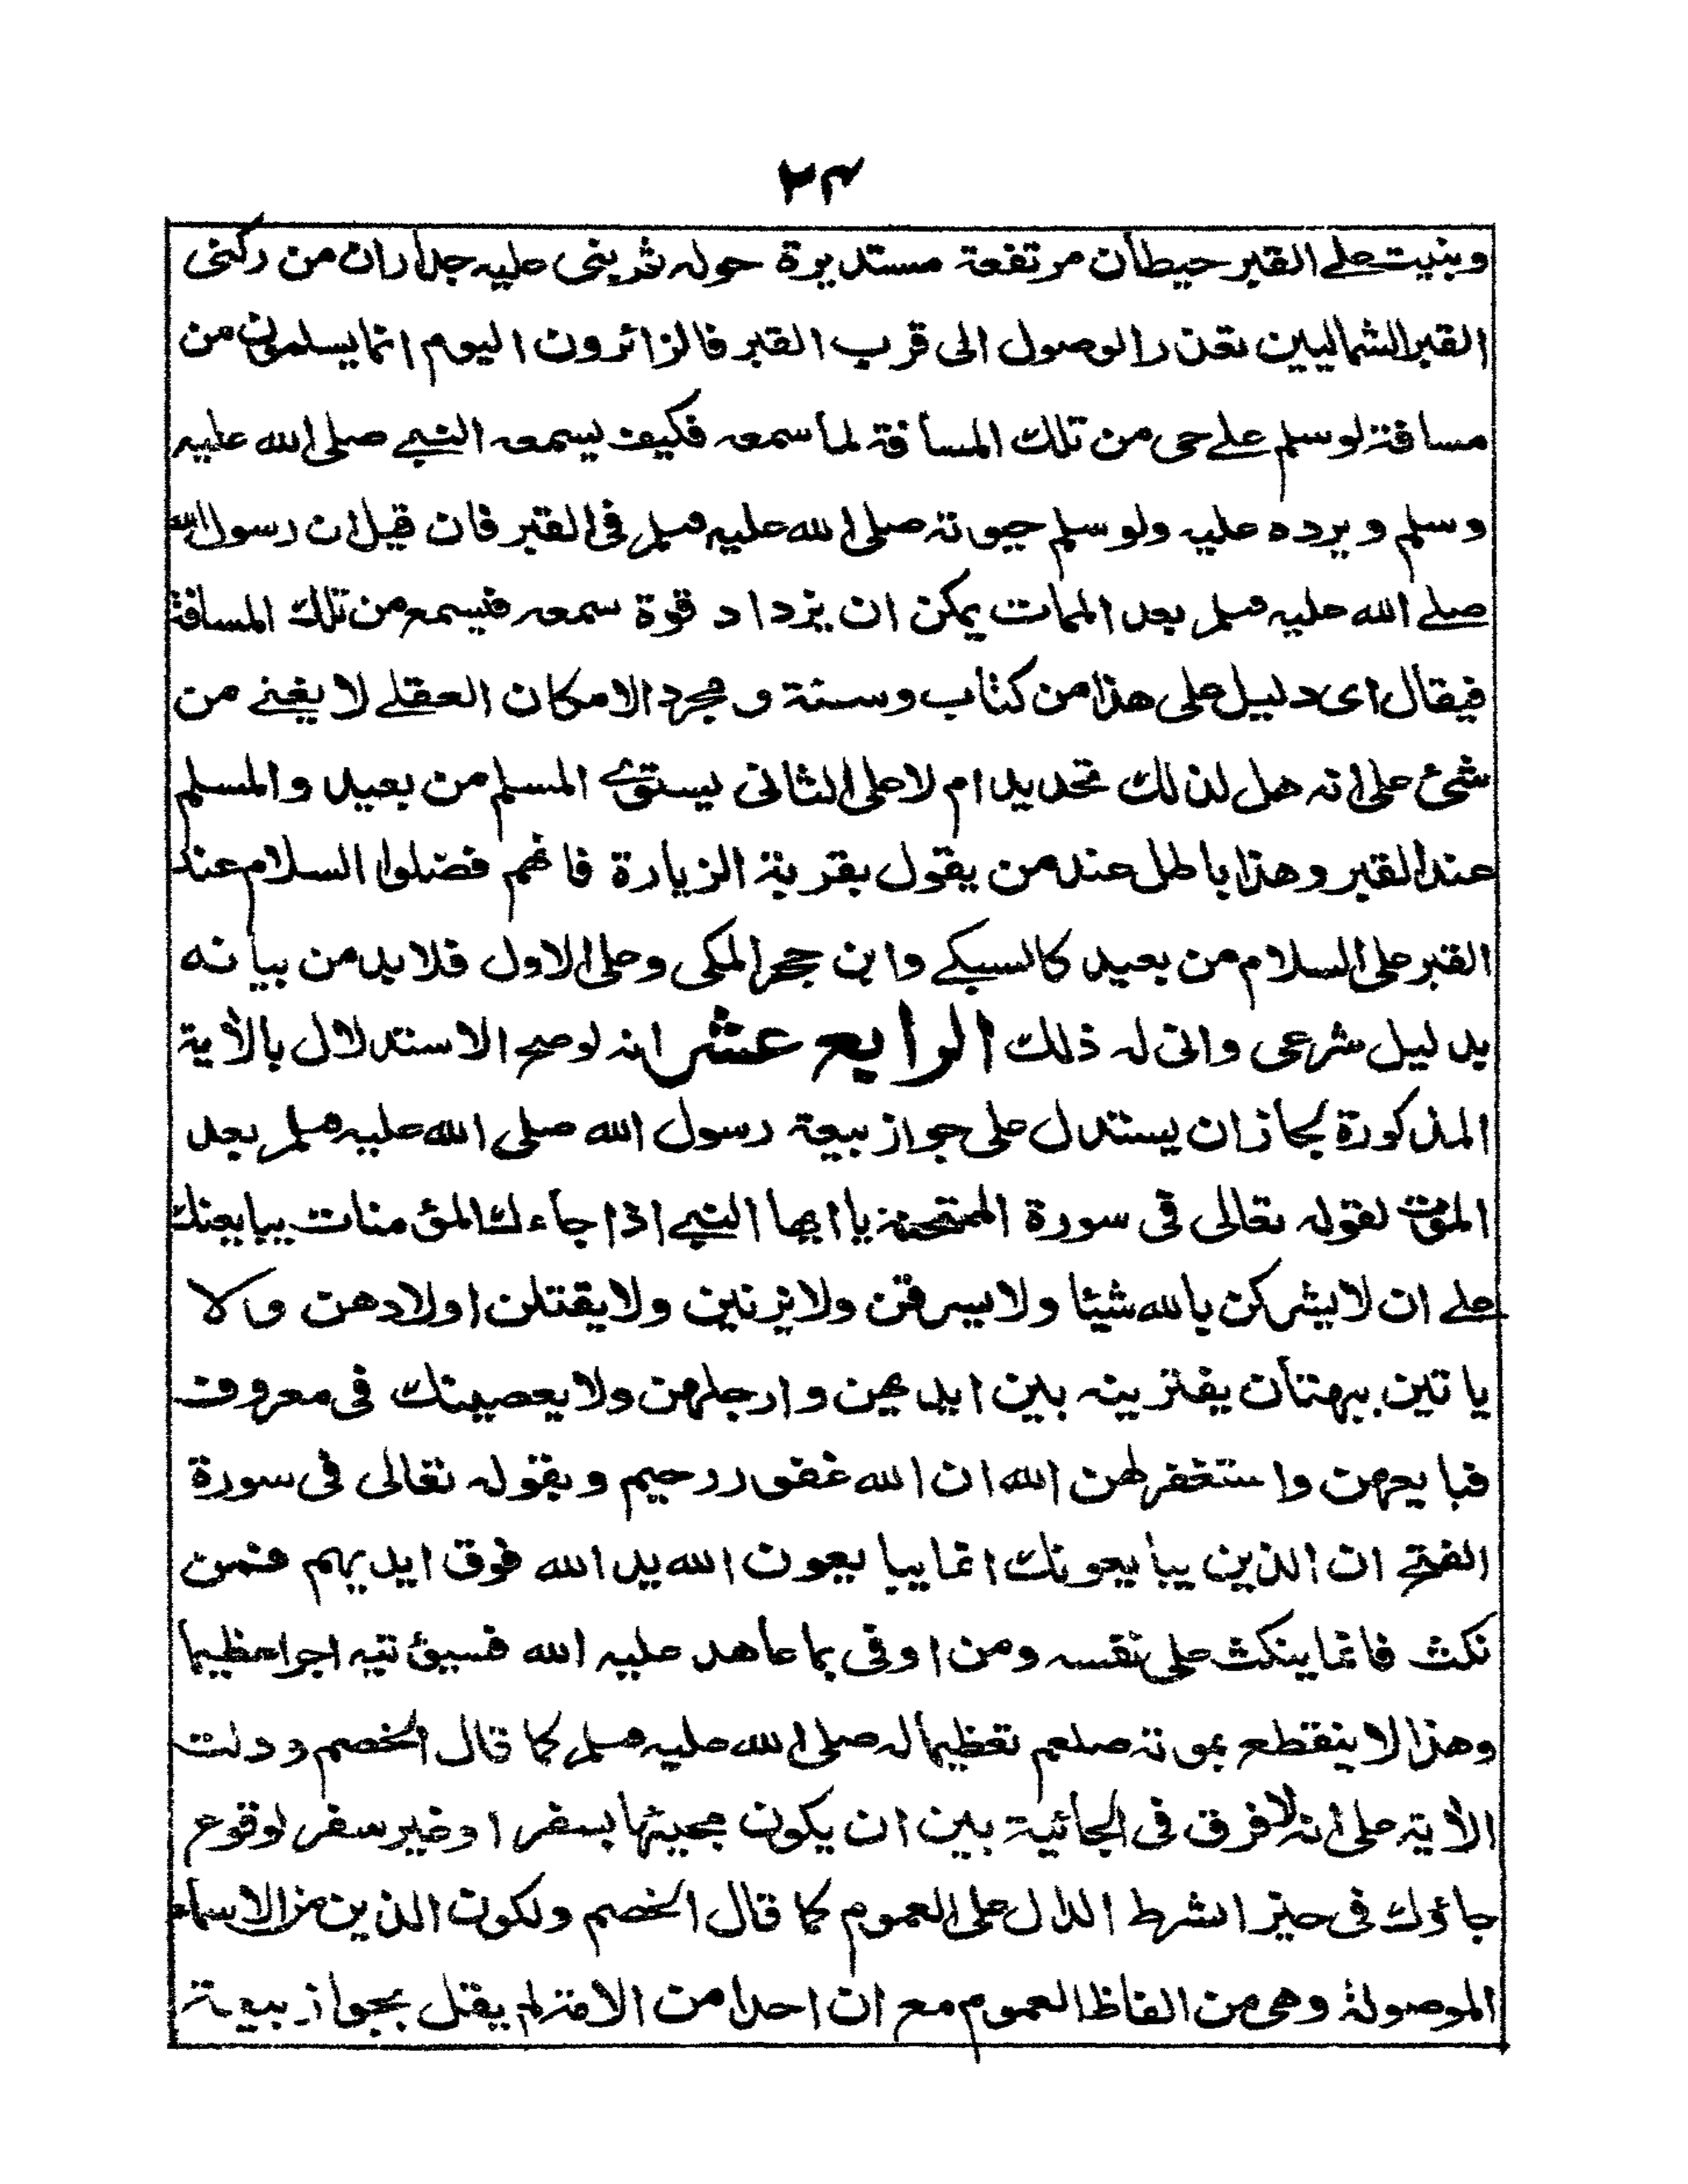 ٢٤
وبنيت على القبر حيطان مرتفعة مستديرة حوله ثم بنى عليه جداران من ركنى
القبر الشماليين تعذر الوصول الى قرب القبر فالزائرون اليوم انما يسلمون من
مسافة لو سلم على حى من تلك المسافة لما سمعه فكيف يسمعه النبي صلى الله عليه
وسلم ويرده عليه ولو سلم حيوته صلى الله عليه وسلم فى القبر فان قيل ان رسول الله
صلى الله عليه وسلم بعد الممات يمكن ان يزداد قوة سمعه فيسمع من تلك المسافة
فيقال اى دليل على هذا من كتاب وسنة ومجرد الامكان العقلے لا يغنے من
شئ على انه هل لذلك تحديد ام لا على الثانى يستوے المسلم من بعيد والمسلم
عند القبر وهذا باطل عند من يقول بقربة الزيارة فانهم فضلوا السلام عند
القبر على السلام من بعيد كالسبكے وابن حجر المكى وعلى الاول فلا بد من بيانه
بدليل شرعى وانى له ذلك الرابع عشر انه لو صح الاستدلال بالأية
المذكورة لجاز ان يستدل على جواز بيعة رسول الله صلى الله عليه وسلم بعد
الموت لقوله تعالى فى سورة الممتحنة يا ايها النبے اذا جاءك المؤمنات يبايعنك
علے ان لا يشركن بالله شيئا ولا يسرقن ولا يزنين ولا يقتلن اولادهن ولا
ياتين ببهتان يفترينه بين ايديهن وارجلهن ولا يعصينك فى معروف
فبايعهن واستغفر لهن الله ان الله غفور رحيم وبقوله تعالى فى سورة
الفتح ان الذين يبايعونك انما يبايعون الله يد الله فوق ايديهم فمن
نكث فانما ينكث على نفسه ومن اوفى بما عاهد عليه الله فسيؤتيه اجرا عظيما
وهذا لا ينقطع بموته صلعم تعظيما له صلى الله عليه وسلم كما قال الخصم ودلت
الأية على انه لا فرق فى الجائية بين ان يكون مجيئها بسفر او غير سفر لوقوع
جاؤك فى حيز الشرط الدال على العموم كما قال الخصم ولكون الذين من الاسماء
الموصولة وهى من الفاظ العموم مع ان احدا من الامة لم يقل بجواز بيعة